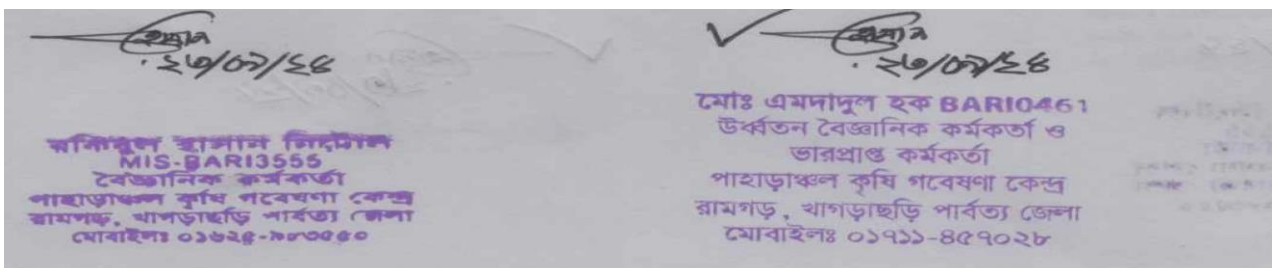 ২৩/০৯/২৪
MIS-BARI3555
বৈজ্ঞানিক কর্মকর্তা
পাহাড়াঞ্চল কৃষি গবেষণা কেন্দ্র
রামগড়, খাগড়াছড়ি পার্বত্য জেলা
মোবাইলঃ
২৩/০৯/২৪
মোঃ এমদাদুল হক BARI0461
উর্ধ্বতন বৈজ্ঞানিক কর্মকর্তা ও
ভারপ্রাপ্ত কর্মকর্তা
পাহাড়াঞ্চল কৃষি গবেষণা কেন্দ্র
রামগড়, খাগড়াছড়ি পার্বত্য জেলা
মোবাইলঃ ০১৯১১-৪৫৭০২৮